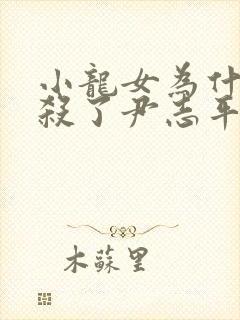 小龍女為什
殺了尹志平
木蘇里